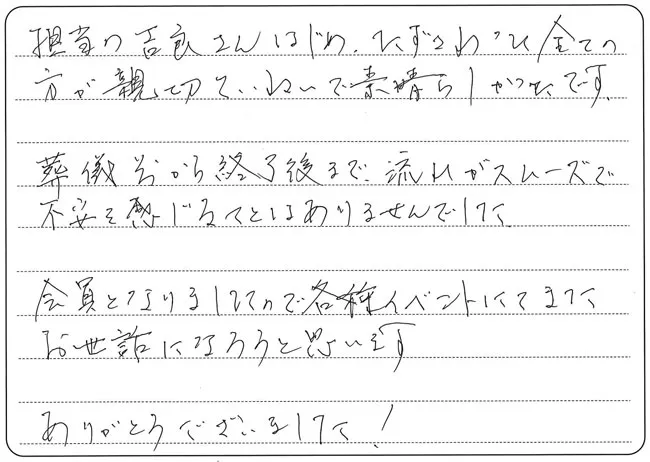 担当の吉良さんはじめ、たずさわった全ての
方が親切ていねいで素晴らしかったです。
葬儀前から終了後まで、流れがスムーズで
不安を感じることはありませんでした
会員となりましたので各種イベントにてまた
お世話になろうと思います
ありがとうございました!